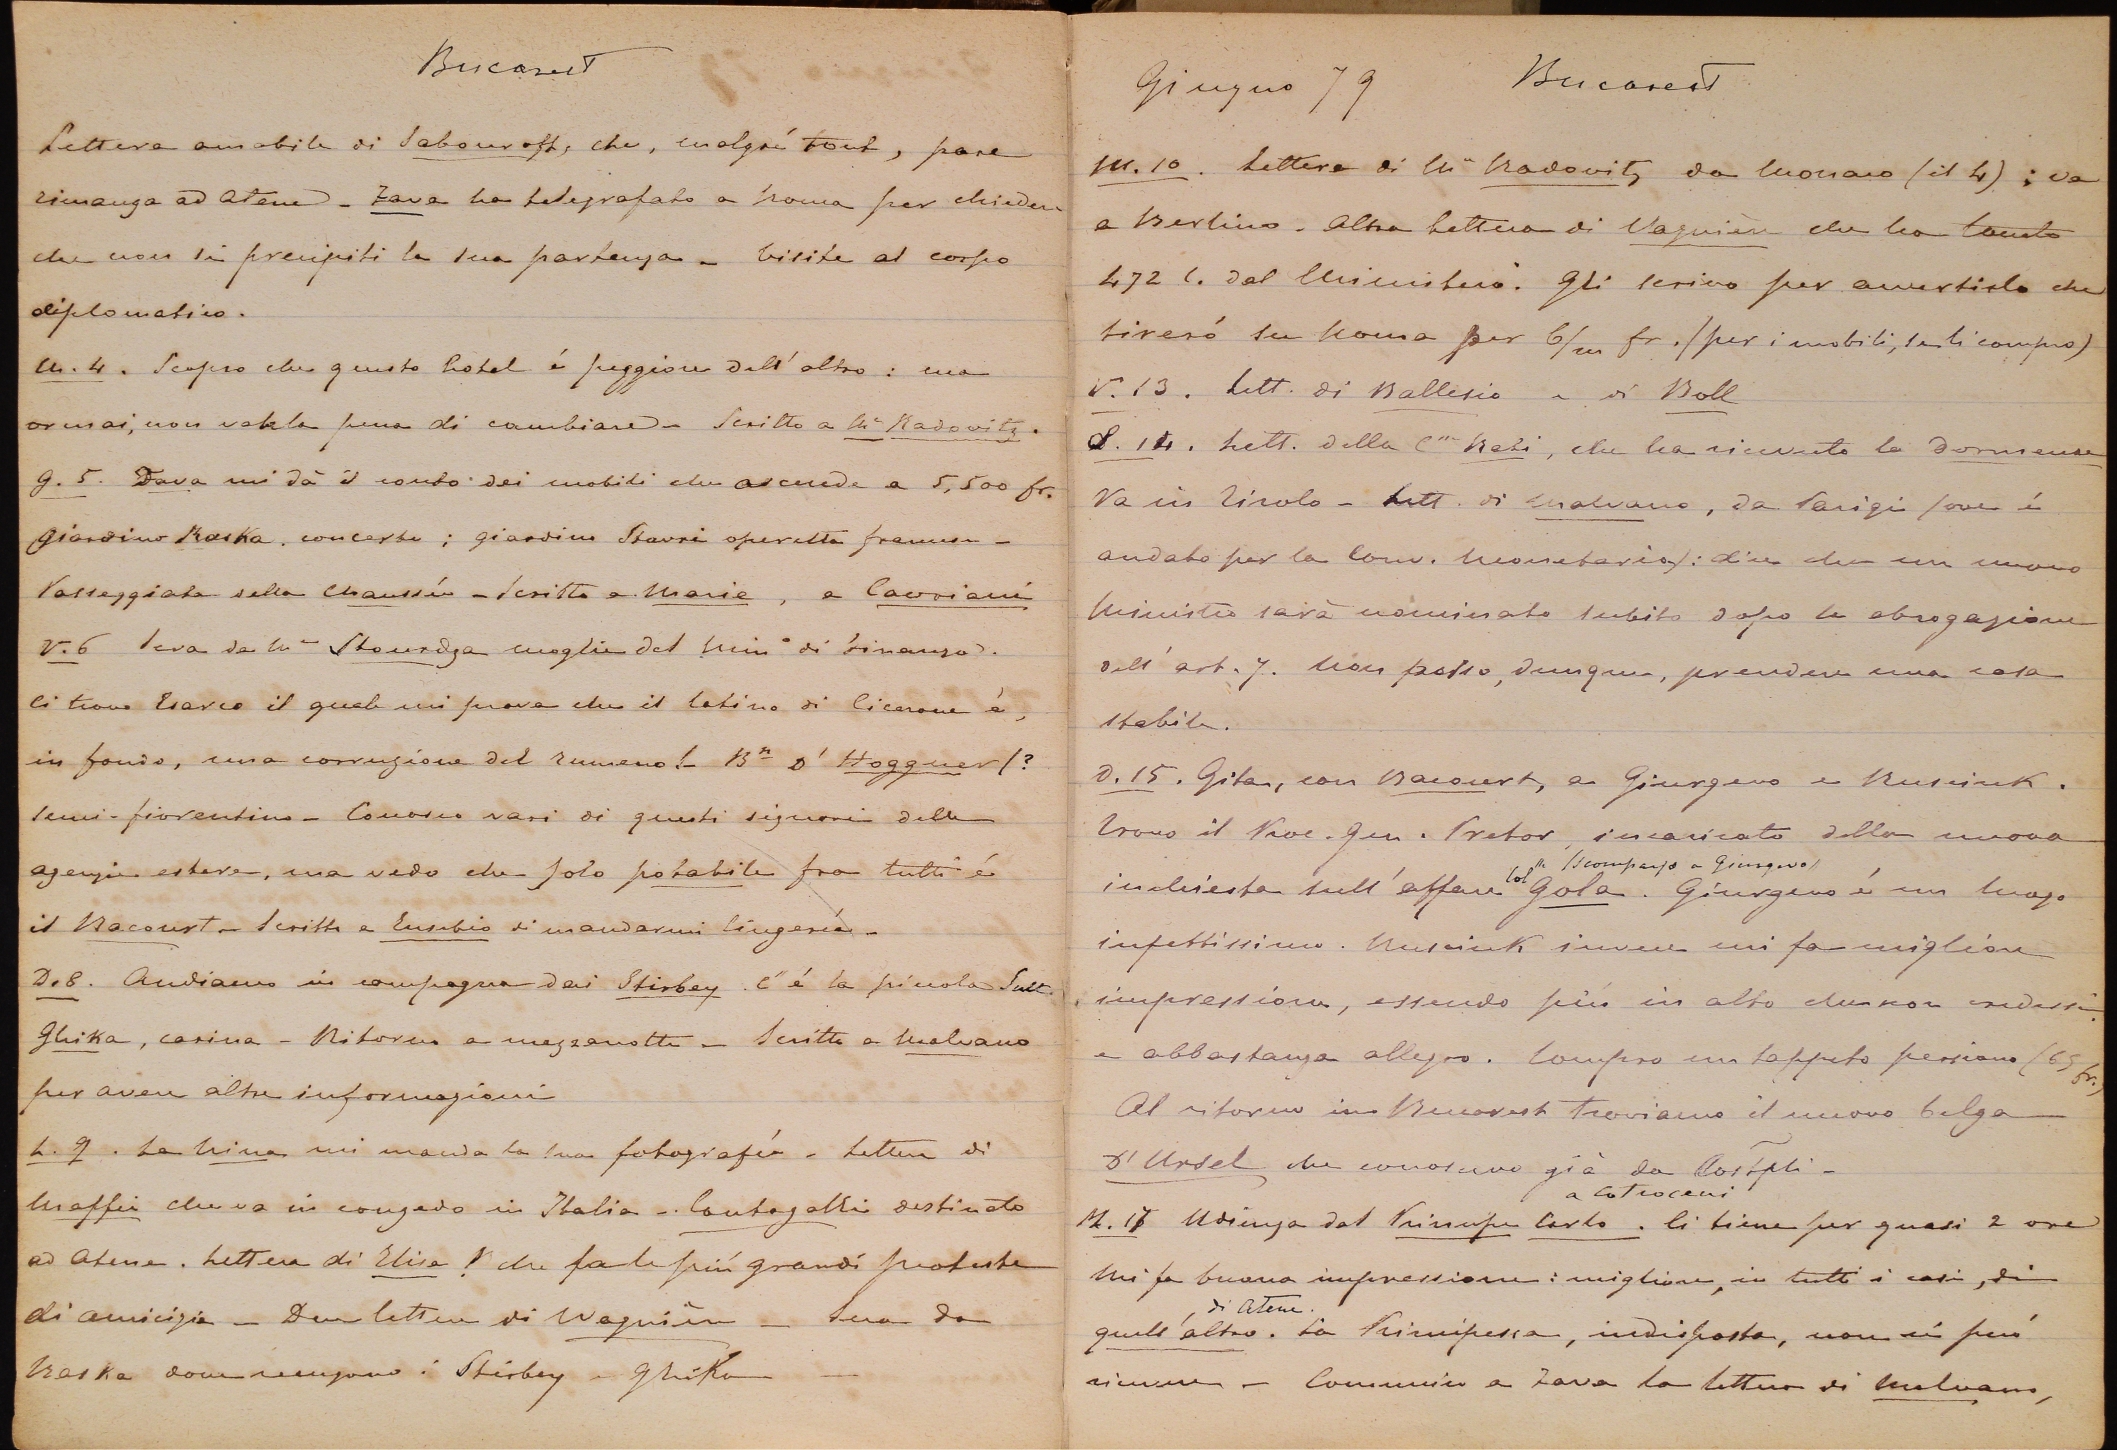 Bucarest
Lettera amabile di Sabouroff, che, malgré tout, pare
rimanga ad Atene - Zava ha telegrafato a Roma per chiedere
che non si precipiti la sua partenza - Visite al corpo
diplomatico.
M. 4. Scopro che questo hotel é peggiore dell'altro: ma
ormai, non vale la pena di cambiare - Scritto a Me Radovitz.
G. 5. Zava mi dà il conto dei mobili che ascende a 5,500 fr.
Giardino Raska, concerto; giardino Stavri operetta francese -
Passeggiata sella Chaussée - Scritto a Marie, a
V. 6 Sera da Me Stourdza moglie del Mino di finanza.
Ci trovo Esarco il quale mi prova che il latino di Cicerone é,
in fondo, una corruzione del rumeno! - Bn D'Hoggner (?
semi-fiorentino - Conosco vari di questi signori delle
agenzie estere, ma vedo che solo potabile fra tutti é
il Bacourt - Scritto a Eusebio di mandarmi lingerie -
D. 8. Andiamo in campagna dai Stirbey. C'é la piccola Sult.
Ghika, carina - Ritorno a mezzanotte - Scritto a Malvano
per avere altre informazioni
L. 9. La Nina mi manda la sua fotografia - Lettera di
Maffei che va in congedo in Italia - Cantagalli destinato
ad Atene. Lettera di Elisa! che fa le piú grandi proteste
di amicizia - Due lettere di Wagnière - Sera da
Raska dove vengono i Stirbey - Ghika -
Giugno 79 Bucarest
M. 10. Lettera di Me Radovitz da Monaco (il 4); va
a Berlino. Altra lettera di Wagnière che ha
472 l. dal Ministero. Gli scrivo per avvertirlo che
tireró su Roma per 6/m fr. (per i mobili, se li compro)
V. 13. Lett. di Ballesio e di Boll
S. 14. Lett. della Csse Rati, che ha ricevuto la dormeuse
Va in Tirolo - Lett. di Malvano, da Parigi (ove é
andato per la Conv. Monetaria): dice che un nuovo
Ministro sarà nominato subito dopo la abrogazione
dell'art. 7. Non posso, dunque, prendere una casa
stabile.
D. 15. Gita, con Bacourt, a Giurgevo e Rusciuk.
Trovo il Proc. Gen. Pretor, incaricato della nuova
inchiesta sull'affare Coll Gola (scomparso a Giurgevo). Giurgevo é un luogo
infettissimo. Rusciuk invece mi fa migliore
impressione, essendo piú in alto che non credessi,
e abbastanza allegro. Compro un tappeto persiano (65 fr.)
Al ritorno in Bucarest troviamo il nuovo belga
D'Ursel che conoscevo già da Costpli -
M. 17 Udienza dal Principe Carlo a Cotroceni. Ci tiene per quasi 2 ore
Mi fa buona impressione: migliore, in tutti i casi, di
quell'altro di Atene. La Principessa, indisposta, non ci puó
ricevere - Comunico a Zava la lettera di Malvano,